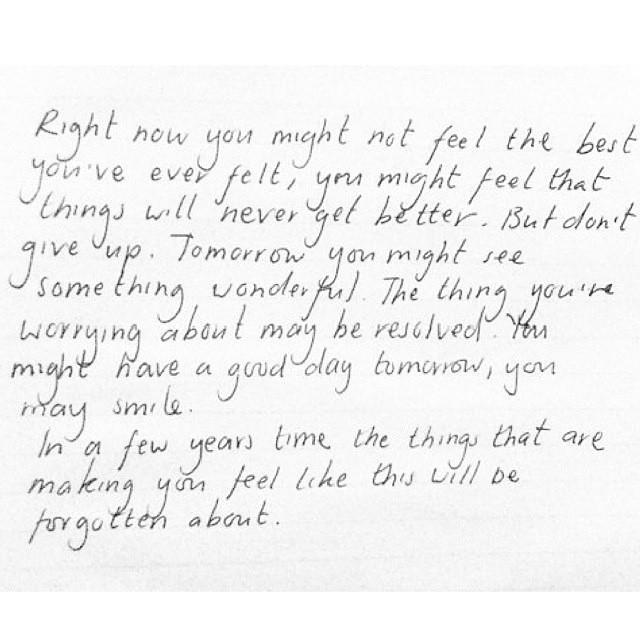 Right now you might not feel the best
you've ever felt, you might feel that
things will never get better. But don't
give up. Tomorrow you might see
something wonderful. The thing you're
worrying about may be resolved. You
might have a good day tomorrow, you
may smile.
In a few years time the things that are
making you feel like this will be
forgotten about.